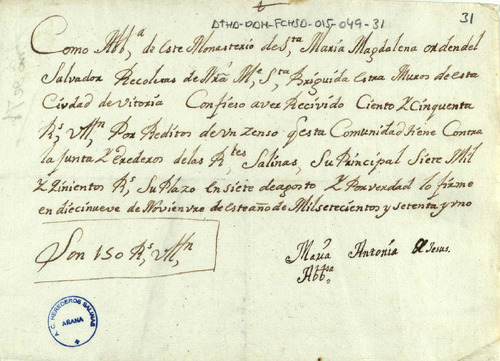 DTHD-DDM-FCHSD-015-049-31
31
Como Abb.ª de este Monasterio de S.ta María Magdalena orden del
Salvador Recoletas de Nra M.e S.ta Briguida extra Muros de esta
Ciudad de Vitoria Confieso aver Recivido Ciento y Cinquenta
R.s V.on Por Reditos de un Zenso q esta Comunidad tiene Contra
la Junta y Erederos de las R.tes Salinas, Su Principal Siete Mil
y quinientos R.s Su Plazo en siete de agosto y Por verdad lo firmo
en diecinueve de Novienvre de este año de Mil setecientos y setenta y uno
Son 150 R.s V.on
María Antonia de Jesus.
Abb.sa
A.C. HEREDEROS SALINAS
AÑANA